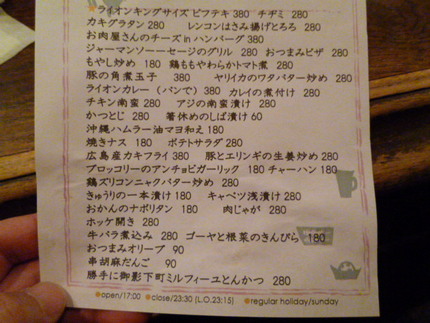 ライオンキングサイズ ビフテキ 380 チヂミ 280
カキグラタン 280 レンコンはさみ揚げとろろ 280
お肉屋さんのチーズ in ハンバーグ 380
ジャーマンソーセージのグリル 280 おつまみピザ 280
もやし炒め 180 鶏ももやわらかトマト煮 280
豚の角煮玉子 380 ヤリイカのワタバター炒め 280
ライオンカレー (パンで) 380 カレイの煮付け 280
チキン南蛮 280 アジの南蛮漬け 280
かつとじ 280 箸休めのしば漬け 60
沖縄ハムラー油マヨ和え 180
焼きナス 180 ポテトサラダ 280
広島産カキフライ 380 豚とエリンギの生姜炒め 280
ブロッコリーのアンチョビガーリック 180 チャーハン 180
鶏ズリコンニャクバター炒め 280
きゅうりの一本漬け 180 キャベツ浅漬け 280
おかんのナポリタン 180 肉じゃが 280
ホッケ開き 280
牛バラ煮込み 280 ゴーヤと根菜のきんぴら 180
おつまみオリーブ 90
串胡麻だんご 90
勝手に御影下町ミルフィーユとんかつ 280
open/17:00 close/23:30 (L.O.23:15) regular holiday/sunday